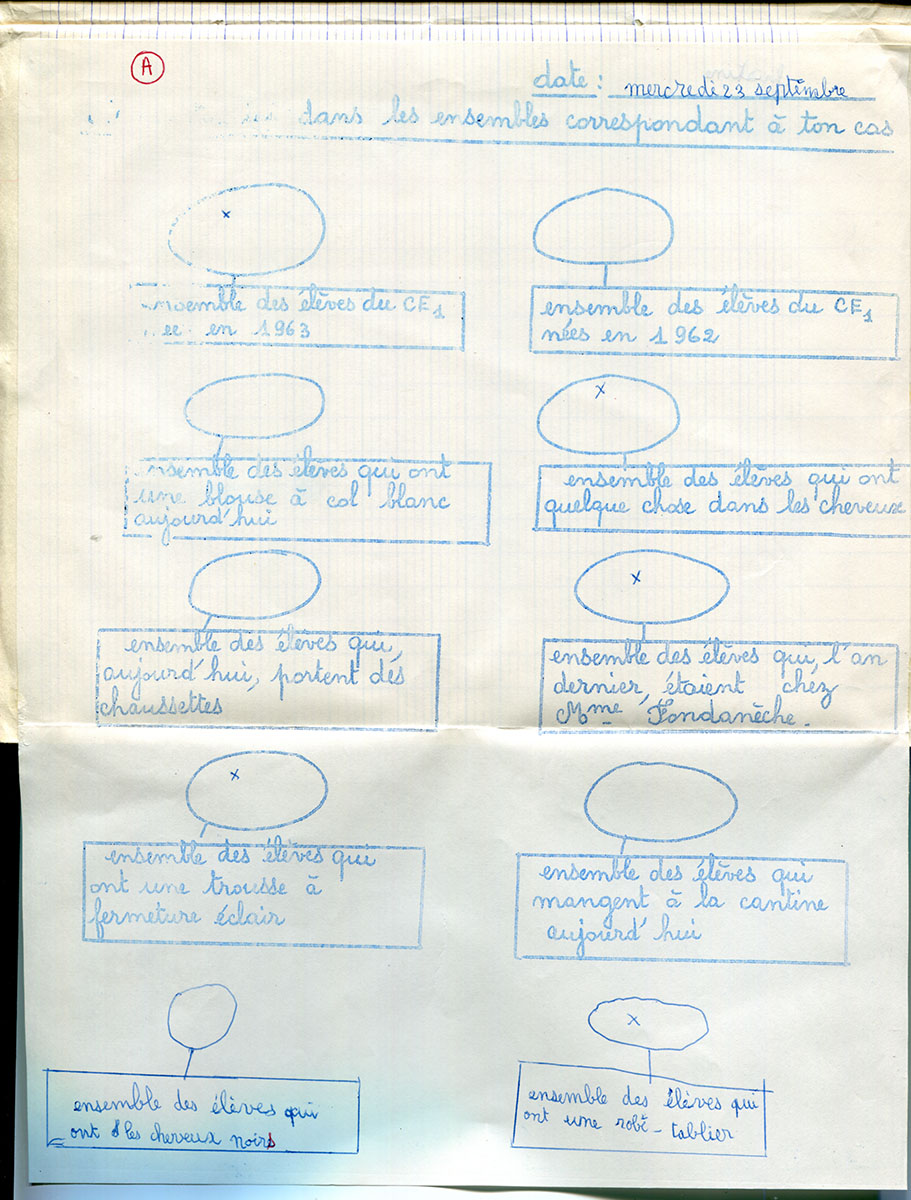 A
date : mercredi 23 septembre
dans les ensembles correspondant à ton cas
x
ensemble des élèves du CE1
en 1963
ensemble des élèves du CE1
nées en 1962
ensemble des élèves qui ont
une blouse à col blanc
aujourd'hui
x
ensemble des élèves qui ont
quelque chose dans les cheveux
ensemble des élèves qui,
aujourd'hui, portent des
chaussettes
x
ensemble des élèves qui, l'an
dernier, étaient chez
Mme Fondanèche.
x
ensemble des élèves qui
ont une trousse à
fermeture éclair
ensemble des élèves qui
mangent à la cantine
aujourd'hui
ensemble des élèves qui
ont les cheveux noirs
x
ensemble des élèves qui
ont une robe - tablier